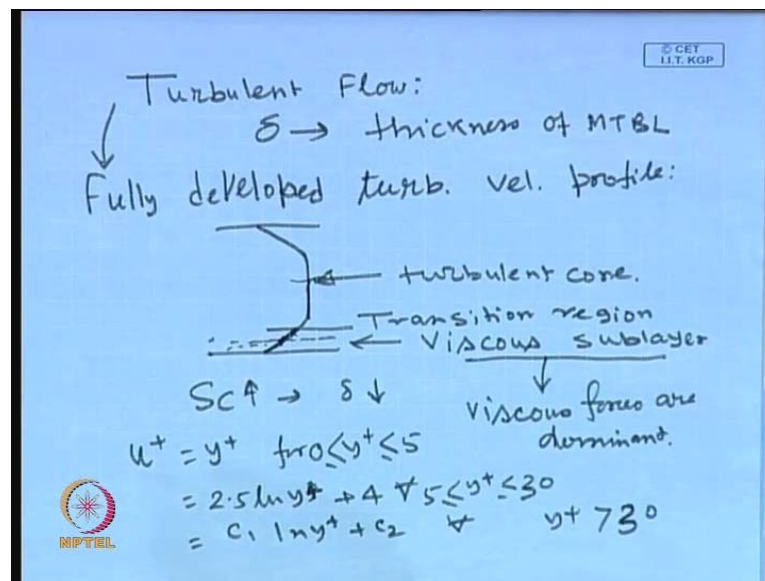 © CET
I.I.T. KGP
Turbulent Flow:
δ → thickness of MTBL
Fully developed turb. vel. profile:
turbulent core.
Transition region
Viscous sublayer
Sc↑ → δ ↓
viscous forces are
dominant.
u⁺ = y⁺ for 0 ≤ y⁺ ≤ 5
= 2.5 ln y⁺ + 4 ∀ 5 ≤ y⁺ ≤ 30
= C₁ ln y⁺ + C₂ ∀ y⁺ > 30
NPTEL